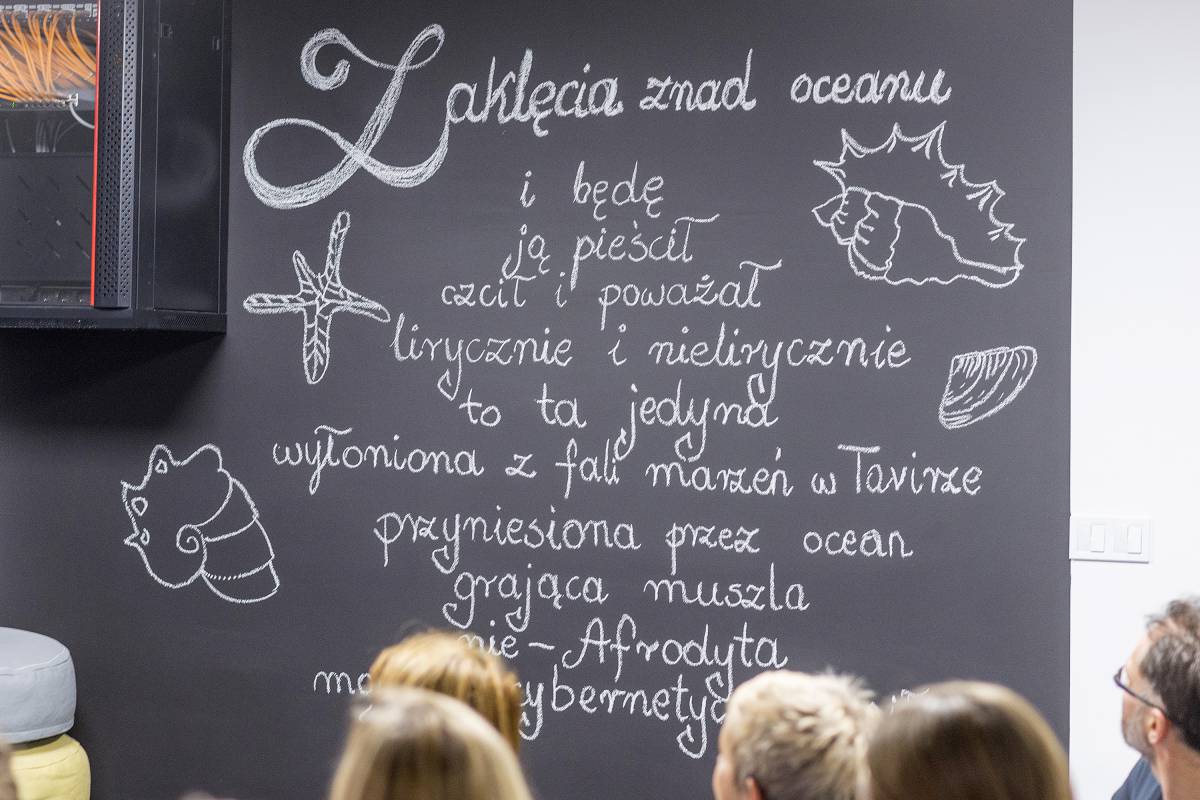 Zaklęcia znad oceanu
i będę
ją pieścił
czcił i poważał
lirycznie i nielirycznie
to ta jedyna
wyłoniona z fali marzeń w Tavirze
przyniesiona przez ocean
grająca muszla
nie – Afrodyta